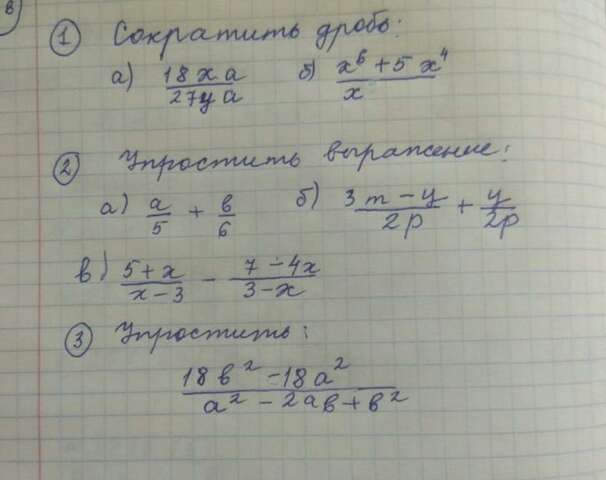 в)
① Сократить дробь:
а) 18xa/27ya б) (x⁶ + 5x⁴)/x
② Упростить выражение:
а) a/5 + в/6 б) (3m − y)/2p + y/2p
в) (5+x)/(x−3) − (7−4x)/(3−x)
③ Упростить:
(18в² − 18a²)/(a² − 2aв + в²)